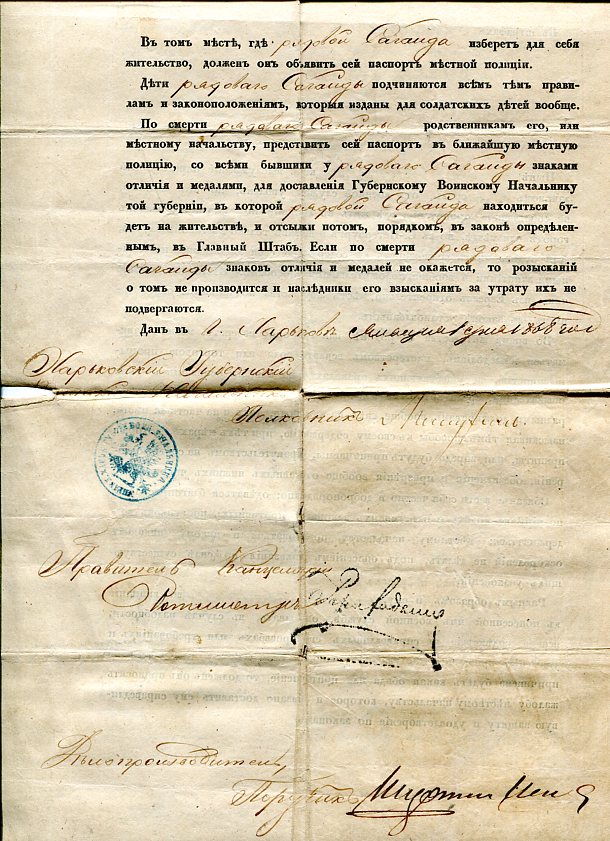 Въ томъ мѣстѣ, гдѣ рядовой Сагайда изберетъ для себя
жительство, долженъ онъ объявить сей паспортъ мѣстной полиціи.
Дѣти рядоваго Сагайды подчиняются всѣмъ тѣмъ прави-
ламъ и законоположеніямъ, которыя изданы для солдатскихъ дѣтей вообще.
По смерти рядоваго Сагайды родственникамъ его, или
мѣстному начальству, представить сей паспортъ въ ближайшую мѣстную
полицію, со всѣми бывшими у рядоваго Сагайды знаками
отличія и медалями, для доставленія Губернскому Воинскому Начальнику
той губерніи, въ которой рядовой Сагайда находиться бу-
детъ на жительствѣ, и отсылки потомъ, порядкомъ, въ законѣ опредѣлен-
нымъ, въ Главный Штабъ. Если по смерти рядоваго
Сагайды знаковъ отличія и медалей не окажется, то розысканій
о томъ не производится и наслѣдники его взысканіямъ за утрату ихъ не
подвергаются.
Данъ въ г. Харьковѣ
Харьковскій Губернскій
Полковникъ
Правитель Канцеляріи
Ротмистръ
Дѣлопроизводитель,
Поручикъ